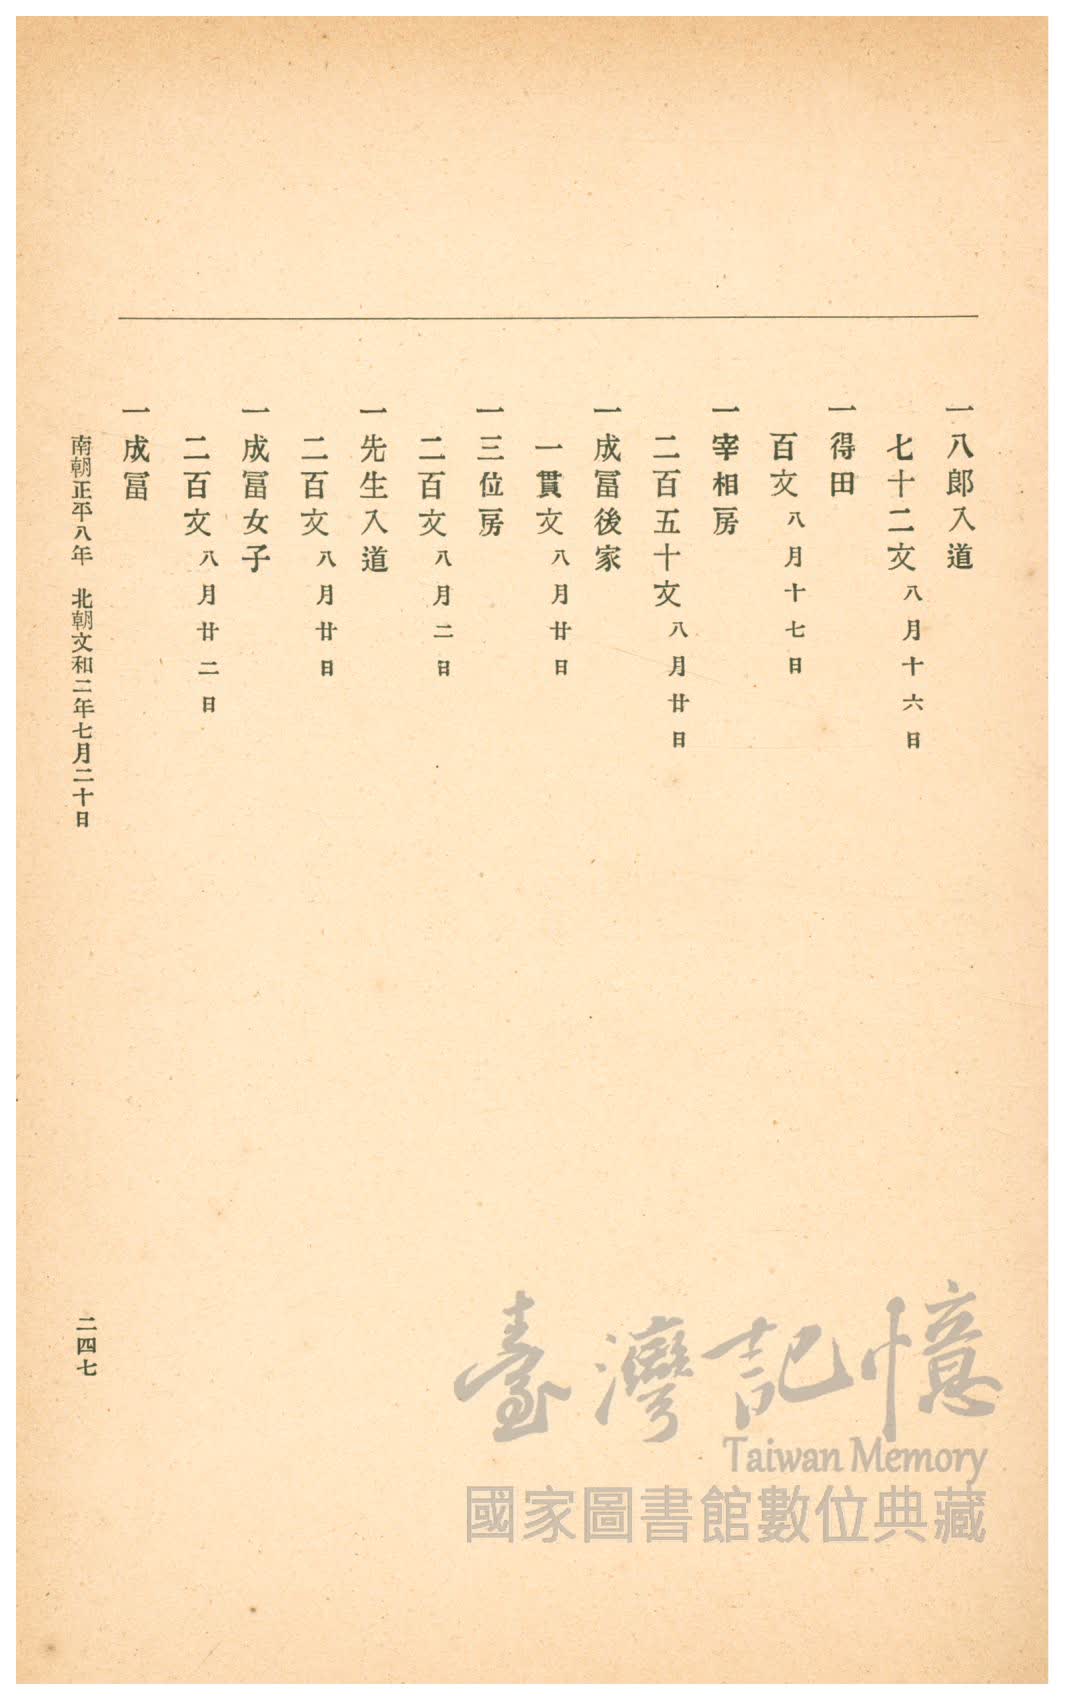 一八郎入道
七十二文八月十六日
一得田
百文八月十七日
一宰相房
二百五十文八月廿日
一成冨後家
一貫文八月廿日
一三位房
二百文八月二日
一先生入道
二百文八月廿日
一成冨女子
二百文八月廿二日
一成冨
南朝正平八年　北朝文和二年七月二十日
二四七
臺灣記憶
Taiwan Memory
國家圖書館數位典藏